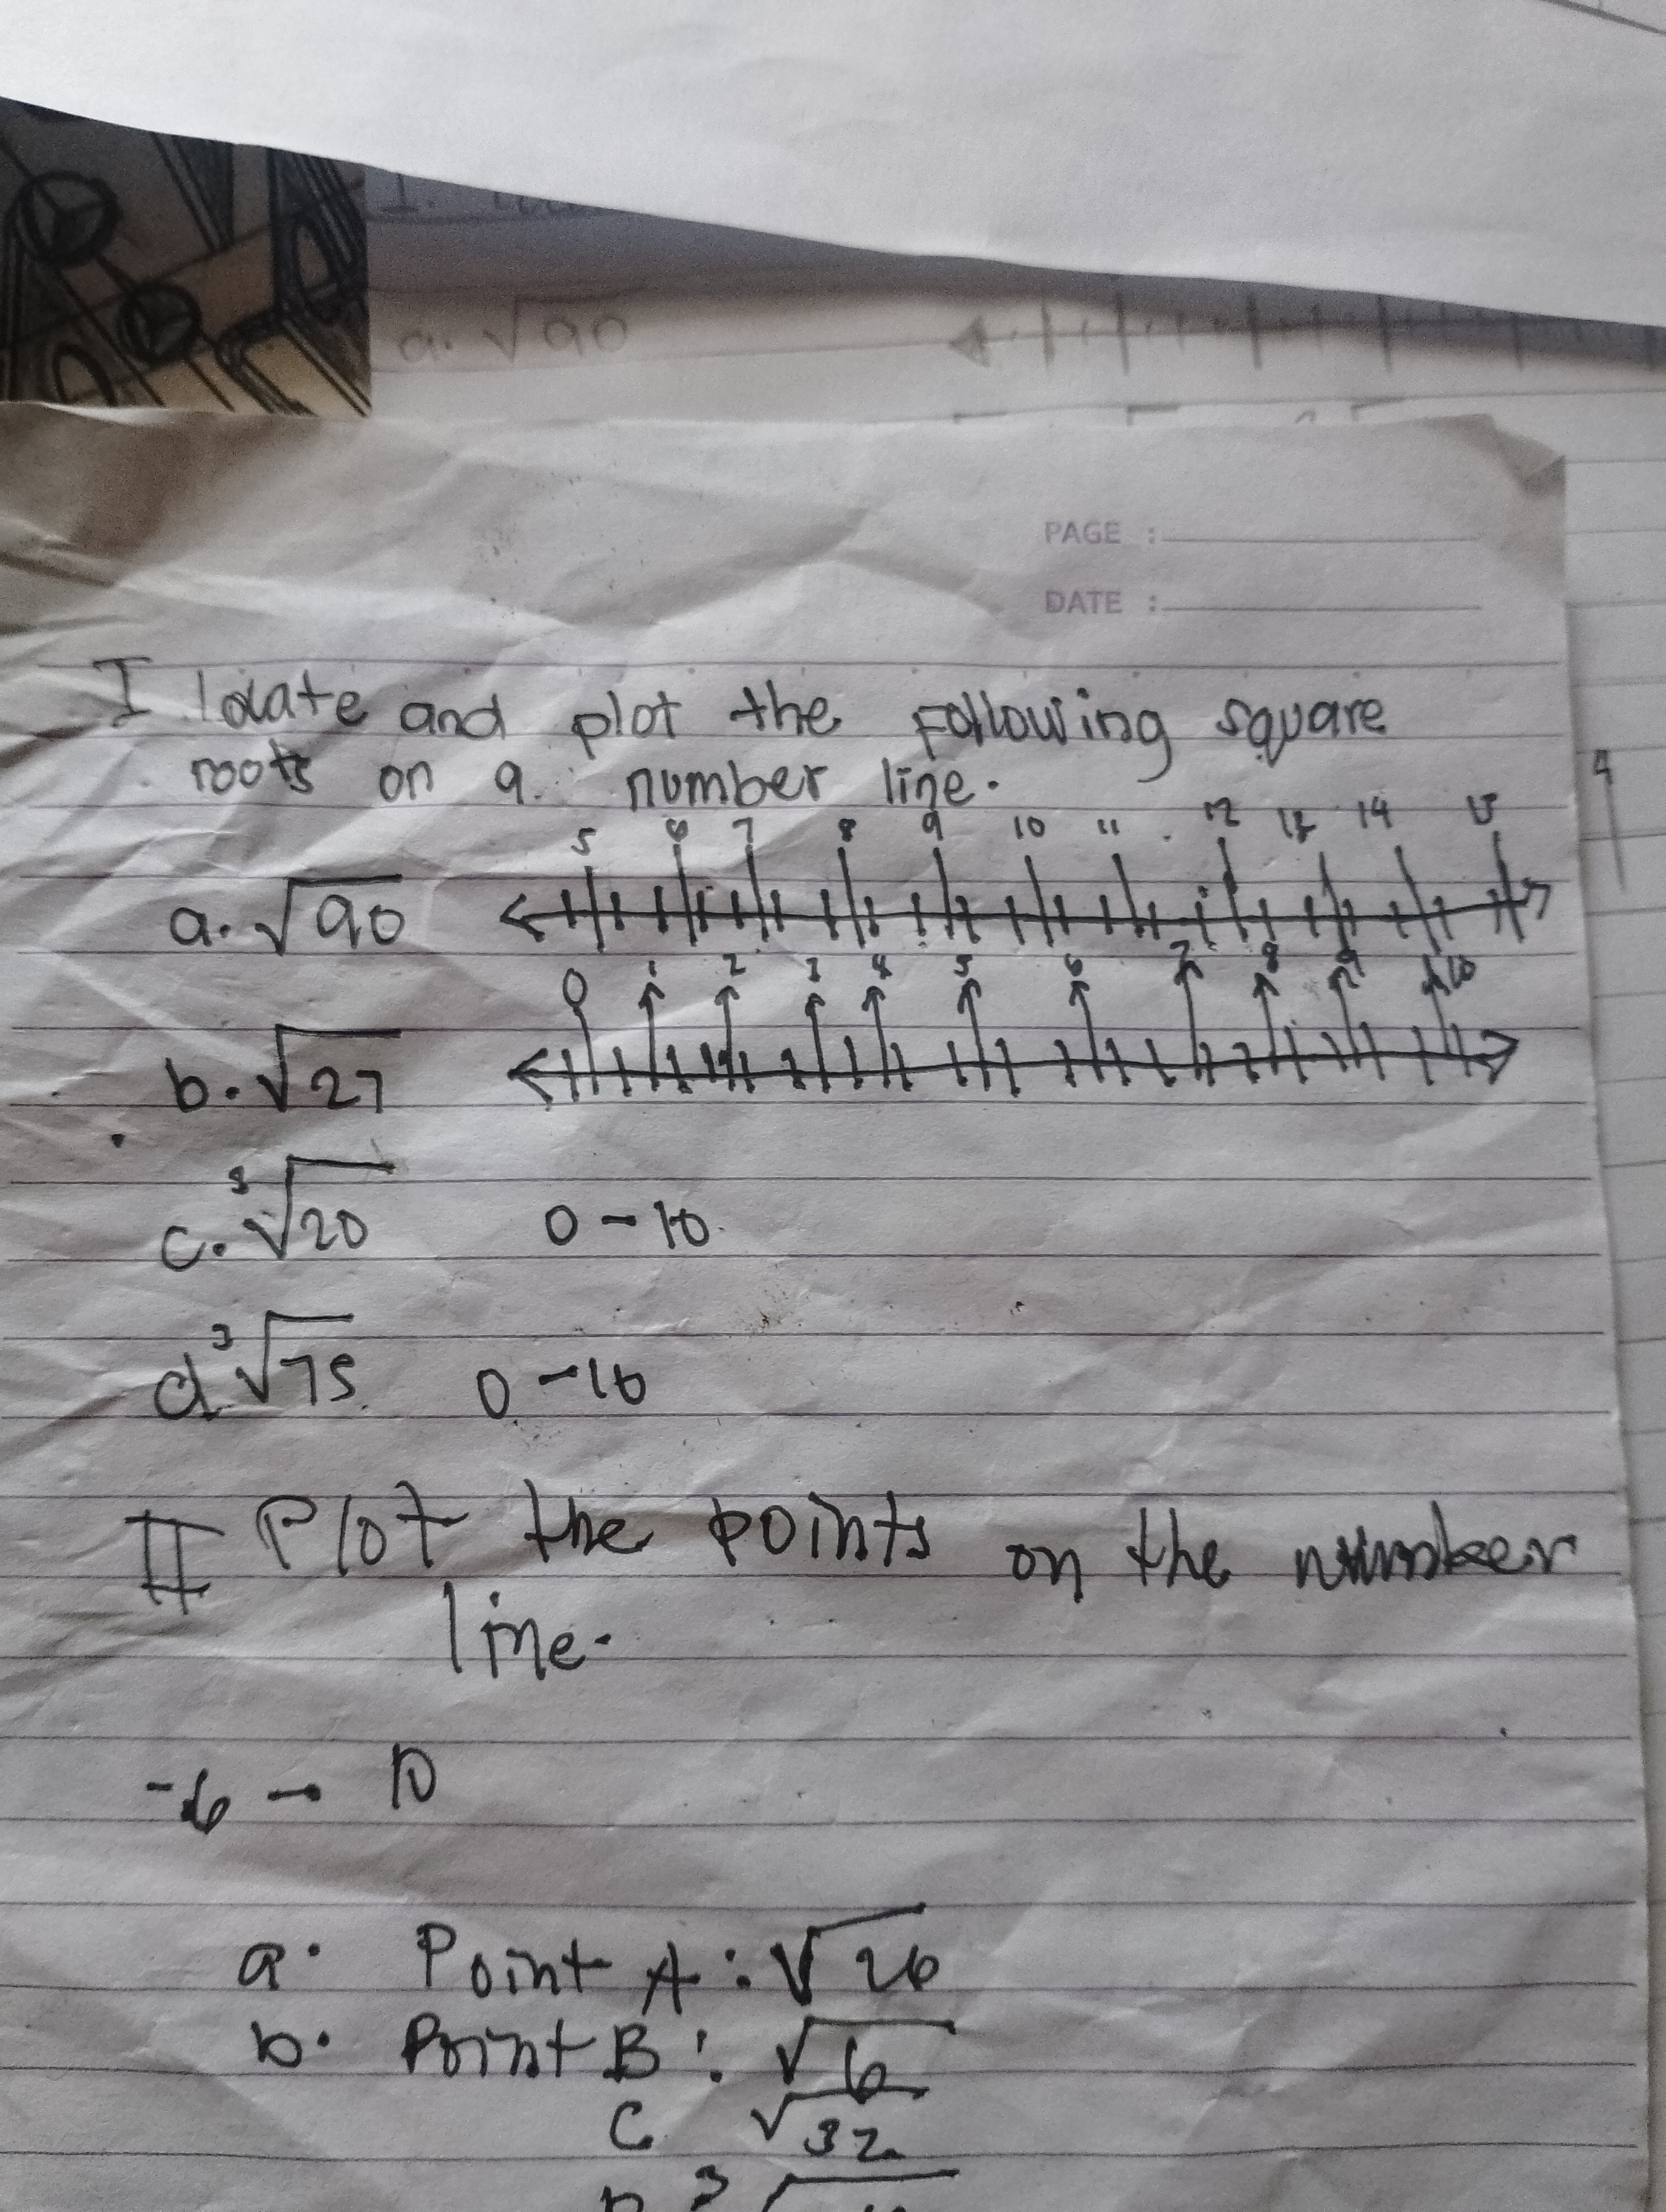 a. √90
PAGE :
DATE :
I locate and plot the following square
roots on a number line.
5 6 7 8 9 10 11 12 13 14 15
a. √90
0 1 2 3 4 5 6 7 8 9 10
b. √27
c. ³√20 0 - 10
d ³√75 0 - 10
II Plot the points on the number
line.
-6 - 10
a. Point A : √26
b. Point B : √6
C √32
D ³√